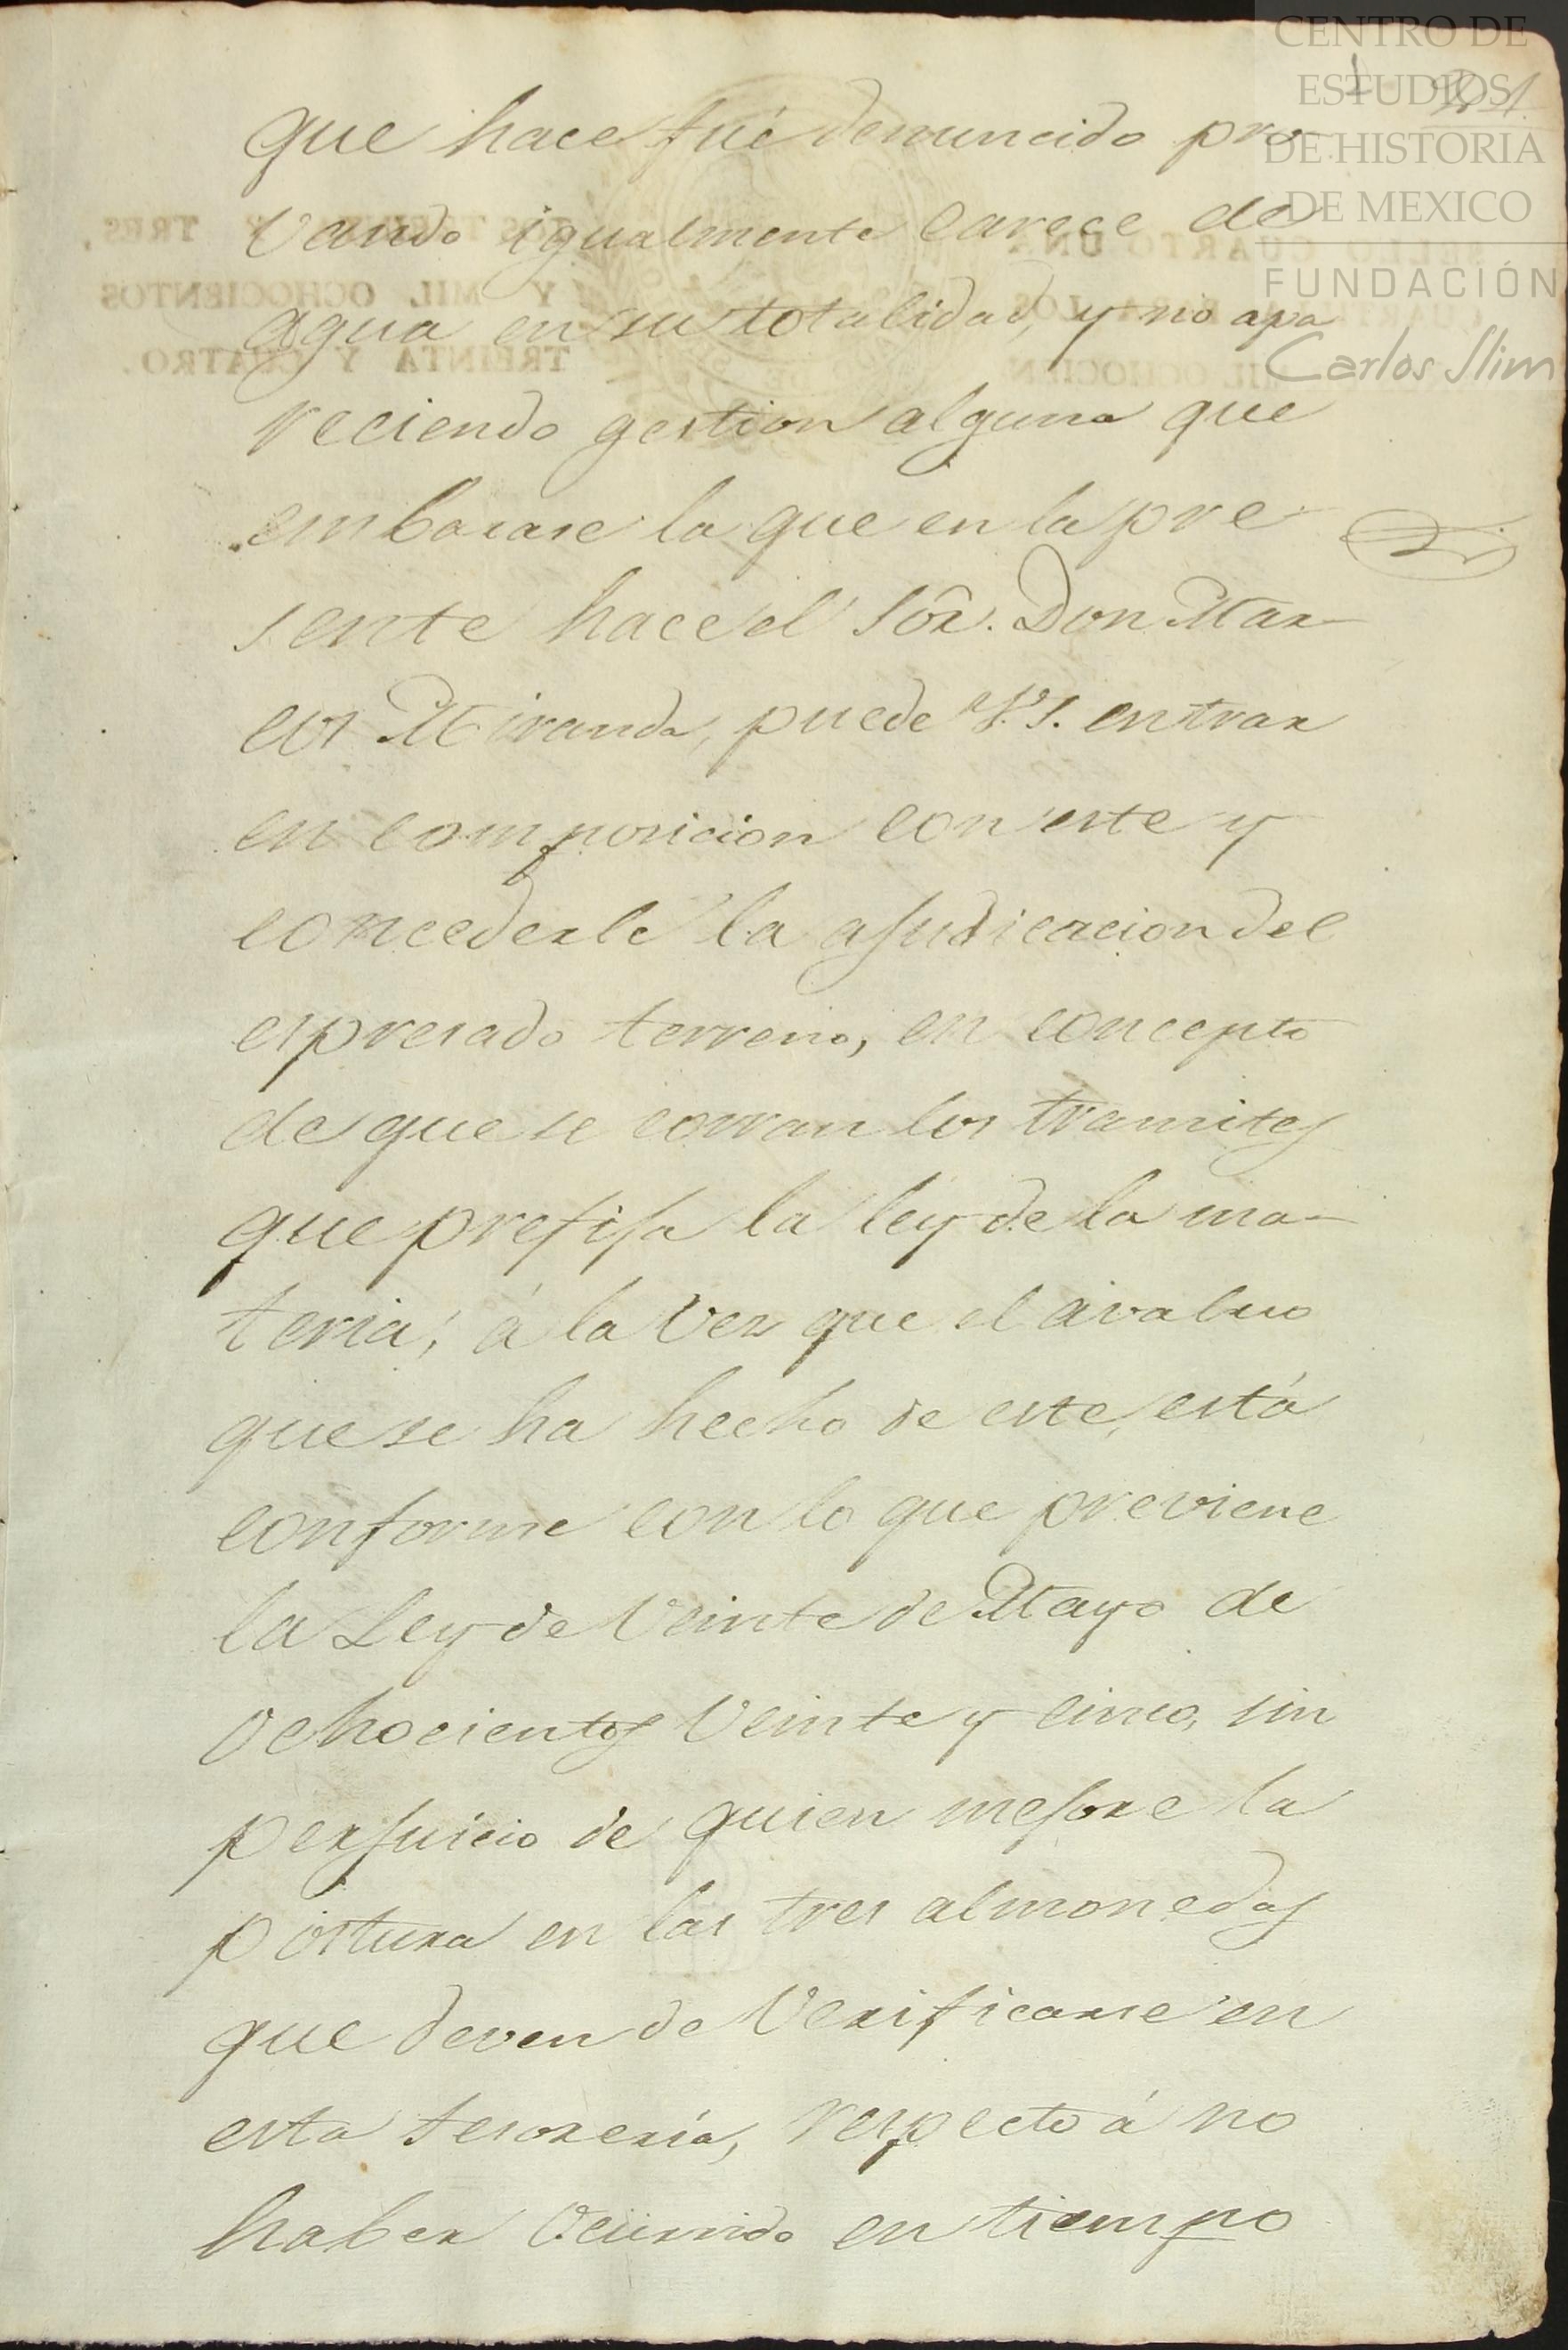 CENTRO DE
ESTUDIOS
DE HISTORIA
DE MEXICO
FUNDACIÓN
Carlos Slim
que hace fué denuncido pro-
vando igualmente carece de
agua en su totalidad, y no apa
reciendo gestion alguna que
embarase la que en la pre
sente hace el Sôr. Don Mar-
cos Miranda, puede V.S. entrar
en composicion con este y
concederle la ajudicacion del
espresado terreno, en concepto
de que se corran los tramites
que prefija la ley de la ma-
teria; á la vez que el avaluo
que se ha hecho de este, está
conforme con lo que previene
la Ley de Veinte de Mayo de
Ochocientos Veinte y cinco, sin
perjuicio de quien mejore la
postura en las tres almonedas
que deven de Verificarse en
esta tesorería, respecto á no
haber Ocurrido en tiempo